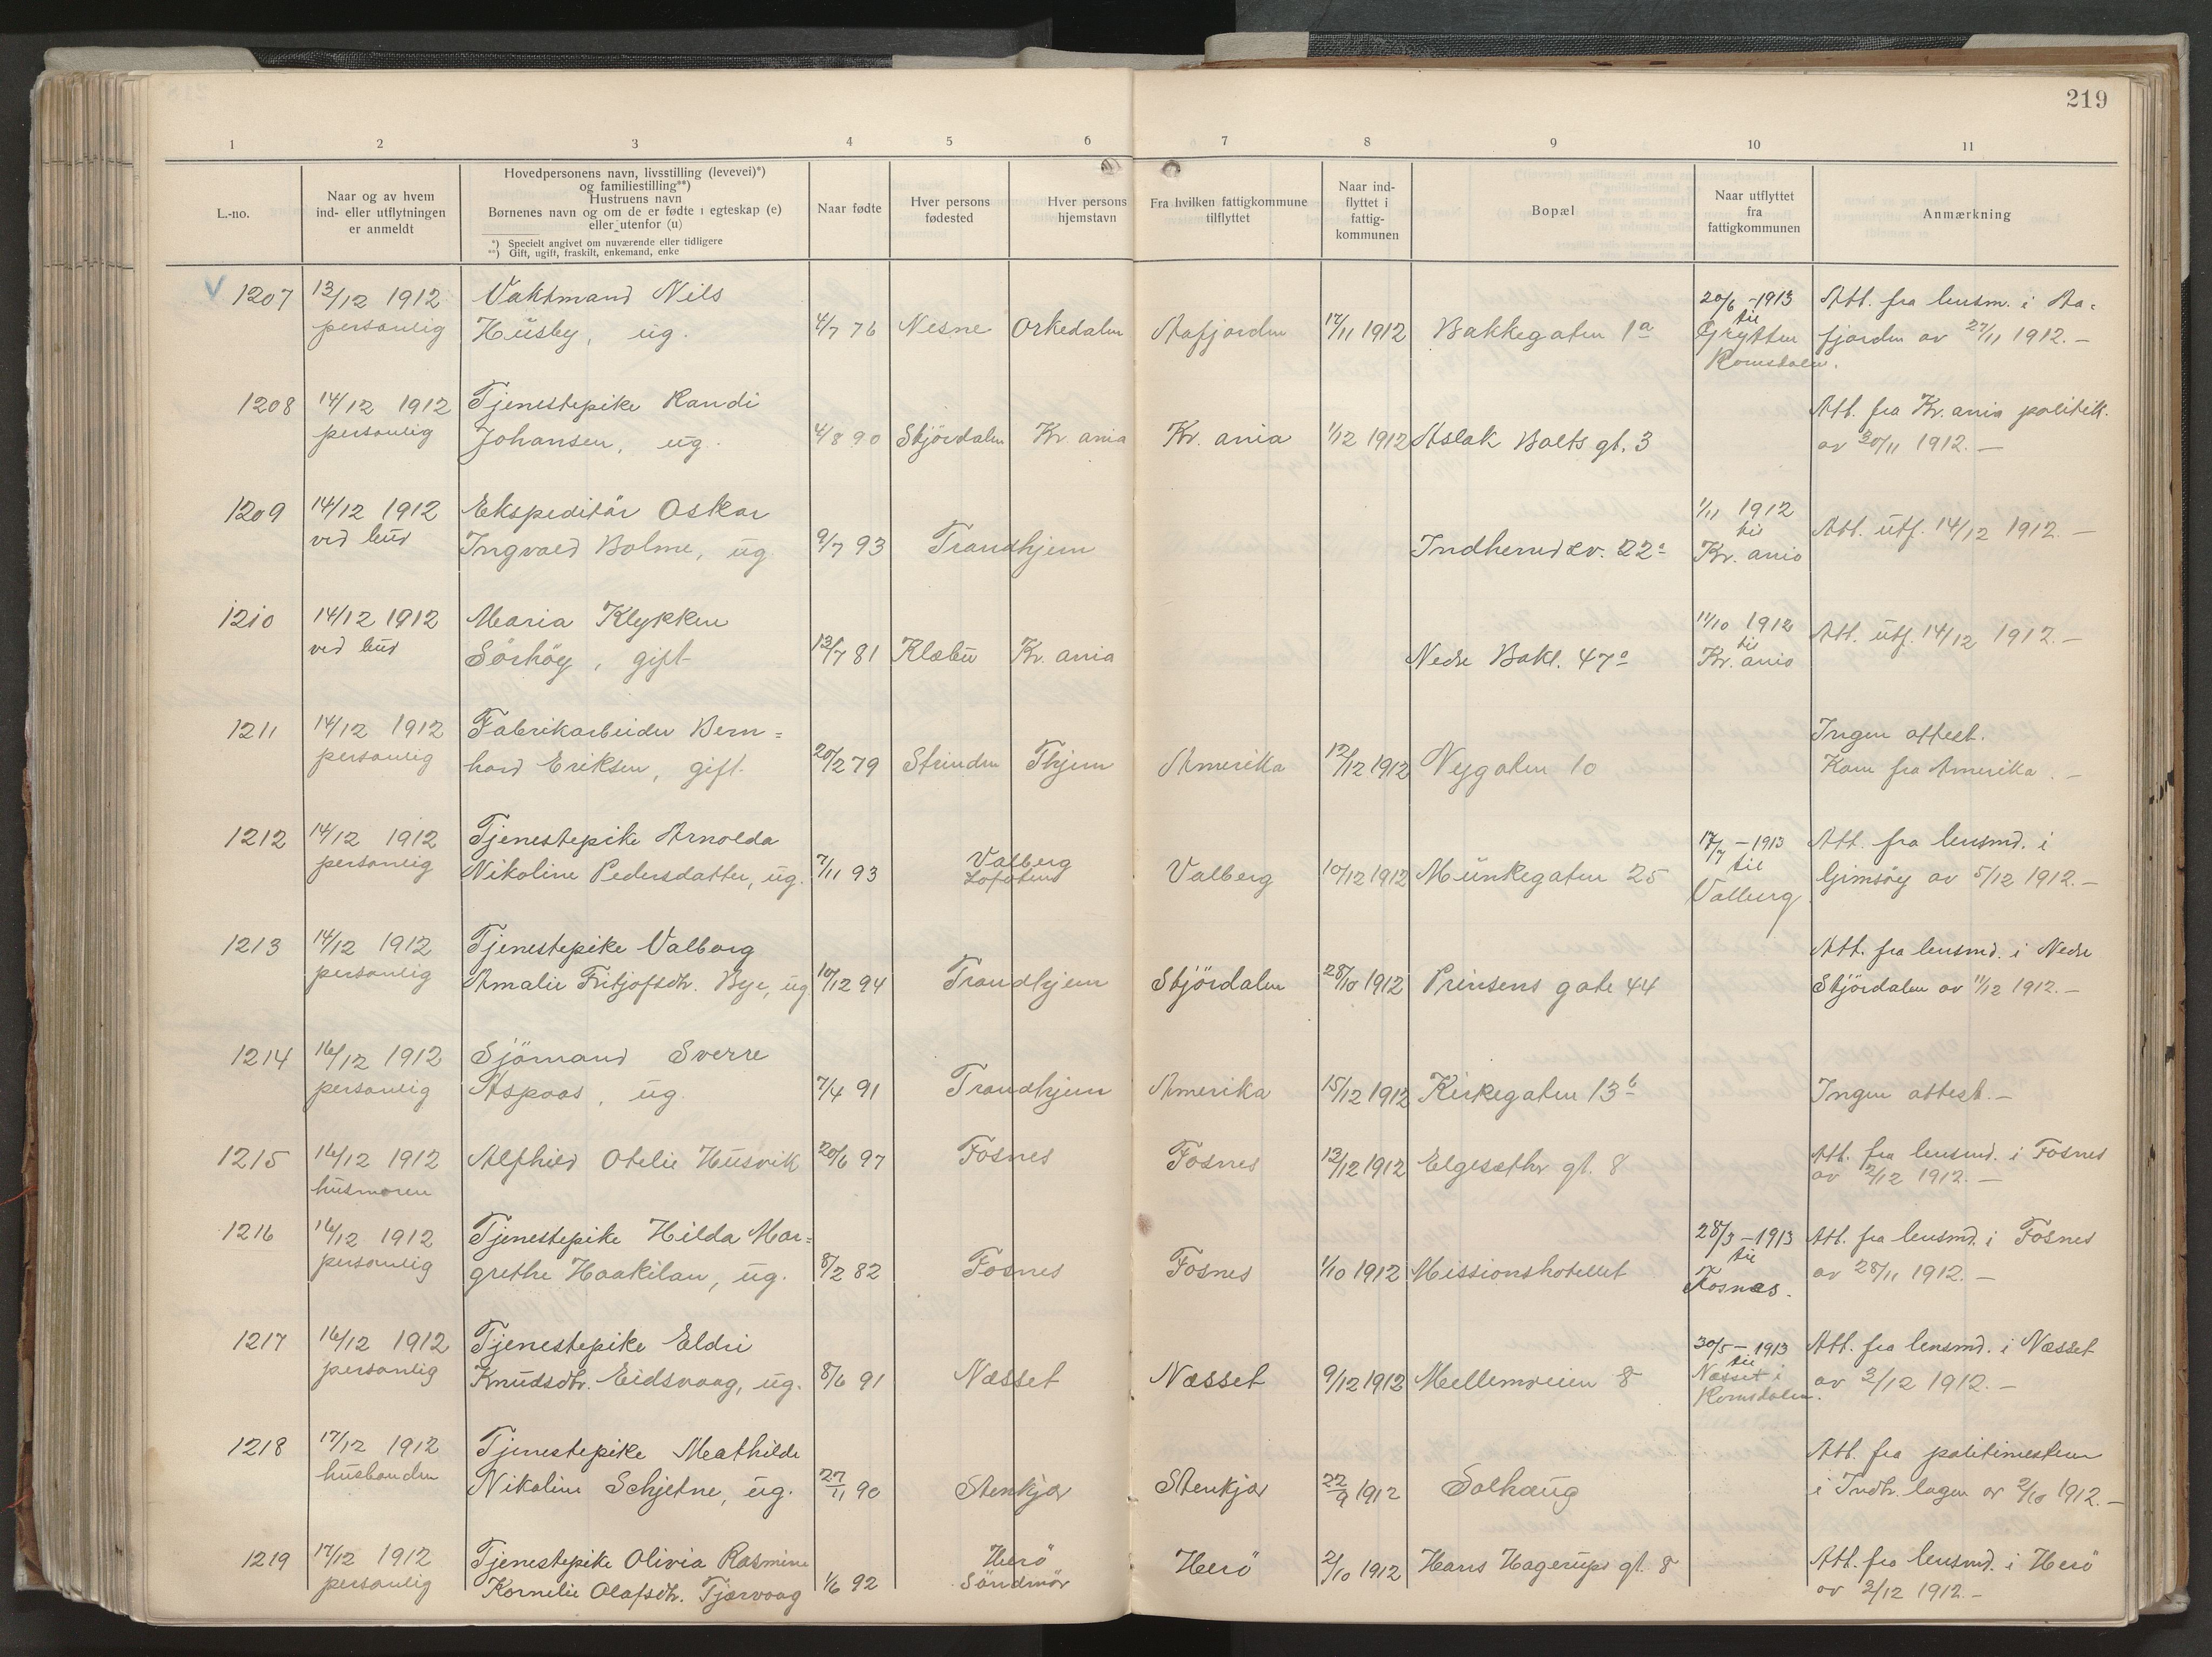 219
1 2 3 4 5 6 7 8 9 10 11
L.-no.
Naar og av hvem
ind- eller utflytningen
er anmeldt
Hovedpersonens navn, livsstilling (levevei)*)
og familiestilling**)
Hustruens navn
Børnenes navn og om de er fødte i egteskap (e)
eller utenfor (u)
*) Specielt angivet om nuværende eller tidligere
**) Gift, ugift, fraskilt, enkemand, enke
Naar fødte
Hver persons
fødested
Hver persons
hjemstavn
Fra hvilken fattigkommune
tilflyttet
Naar ind-
flyttet i
fattig-
kommunen
Bopæl
Naar utflyttet
fra
fattigkommunen
Anmærkning
V 1207 13/12 1912 Vaktmand Nils 20/6 -1913 Att. fra lensm. i Aa=
personlig Husby, ug. 4/7 76 Nesne Orkedalen Aafjorden 17/11 1912 Bakkegaten 1a til Grytten fjorden av 27/11 1912. —
Romsdalen.
1208 14/12 1912 Tjenestepike Randi Att. fra Kr.ania politik.
personlig Johansen, ug. 4/8 90 Stjördalen Kr. ania Kr. ania 1/12 1912 Aslak Bolts gt. 3 av 30/11 1912. —
1209 14/12 1912 Ekspeditör Oskar 1/11 1912 til Att. utf. 14/12 1912. —
ved bud Ingvald Bolme, ug 9/7 93 Trondhjem Indherredsv. 22a Kr. ania
1210 14/12 1912 Maria Klykken 11/10 1912 til Att. utf. 14/12 1912. —
ved bud Sörhöy, gift 13/7 81 Klæbu Kr. ania Nedre Bakl. 47a Kr. ania
1211 14/12 1912 Fabrikarbeider Bern= Ingen attest.
personlig hard Eriksen, gift. 20/2 79 Strinden Thjem Amerika 12/12 1912 Nygaten 10 Kom fra Amerika. —
1212 14/12 1912 Tjenestepike Arnolda 17/7 — 1913 Att. fra lensmd. i
personlig Nikoline Pedersdatter, ug. 7/11 93 Valberg Lofoten Valberg 10/12 1912 Munkegaten 25 til Valberg Gimsöy av 5/12 1912. —
1213 14/12 1912 Tjenestepike Valborg Att. fra lensmd. i Nedre
personlig Amalie Fritjofsdtr. Bye, ug 10/12 94 Trondhjem Stjördalen 28/10 1912 Prinsens gate 44 Stjördalen av 11/12 1912. —
1214 16/12 1912 Sjömand Sverre
personlig Aspaas, ug. 7/4 91 Trondhjem Amerika 15/12 1912 Kirkegaten 13b Ingen attest. —
1215 16/12 1912 Alfhild Otelie Husvik 20/6 97 Fosnes Fosnes 13/12 1912 Elgesæthr gt. 8 Att. fra lensmd. i Fosnes
husmoren av 2/12 1912. —
1216 16/12 1912 Tjenestepike Hilda Mar= 28/3 — 1913 Att. fra lensmd. i Fosnes
personlig grethe Haakilan, ug. 8/2 82 Fosnes Fosnes 1/10 1912 Missionshotellet til Fosnæs. av 28/11 1912. —
1217 16/12 1912 Tjenestepike Eldri 30/5 — 1913 Att. fra lensmd. i Næsset
personlig Knudsdtr. Eidsvaag, ug. 8/6 91 Næsset Næsset 9/12 1912 Mellemveien 8 til Næsset i Romsdalen. av 3/12 1912. —
1218 17/12 1912 Tjenestepike Mathilde Att. fra politimesteren
husbonden Nikoline Schjetne, ug. 27/11 90 Stenkjær Stenkjær 22/9 1912 Solhaug i Indh. lagen av 2/10 1912. —
1219 17/12 1912 Tjenestepike Olivia Rasmine Herö Herö 2/10 1912 Hans Hagerups gt. 8 Att. fra lensmd. i Herö
personlig Kornelie Olafsdtr. Tjærvaag 1/6 92 Söndmör av 2/12 1912. —